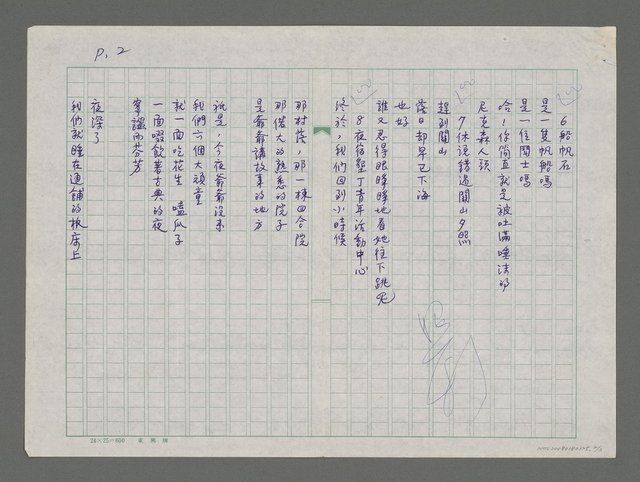 P. 2
6 船帆石
是一隻帆船嗎
是一位鬥士嗎
哈！你簡直就是被吐滿唾沫的
尼克森人頭
7 休說錯過關山夕照
趕到關山
落日都早已下海
也好
誰又忍得眼睜睜地看她往下跳呢
8 夜宿墾丁青年活動中心
終於，我們回到小時候
那村落，那一棟四合院
那偌大的熟悉的院子
是爺爺講故事的地方
祇是，今夜爺爺沒來
我們六個大頑童
就一面吃花生 嗑瓜子
一面啜飲著古典的夜
寧謐而芬芳
夜深了
我們就睡在通舖的板床上
24×25=600